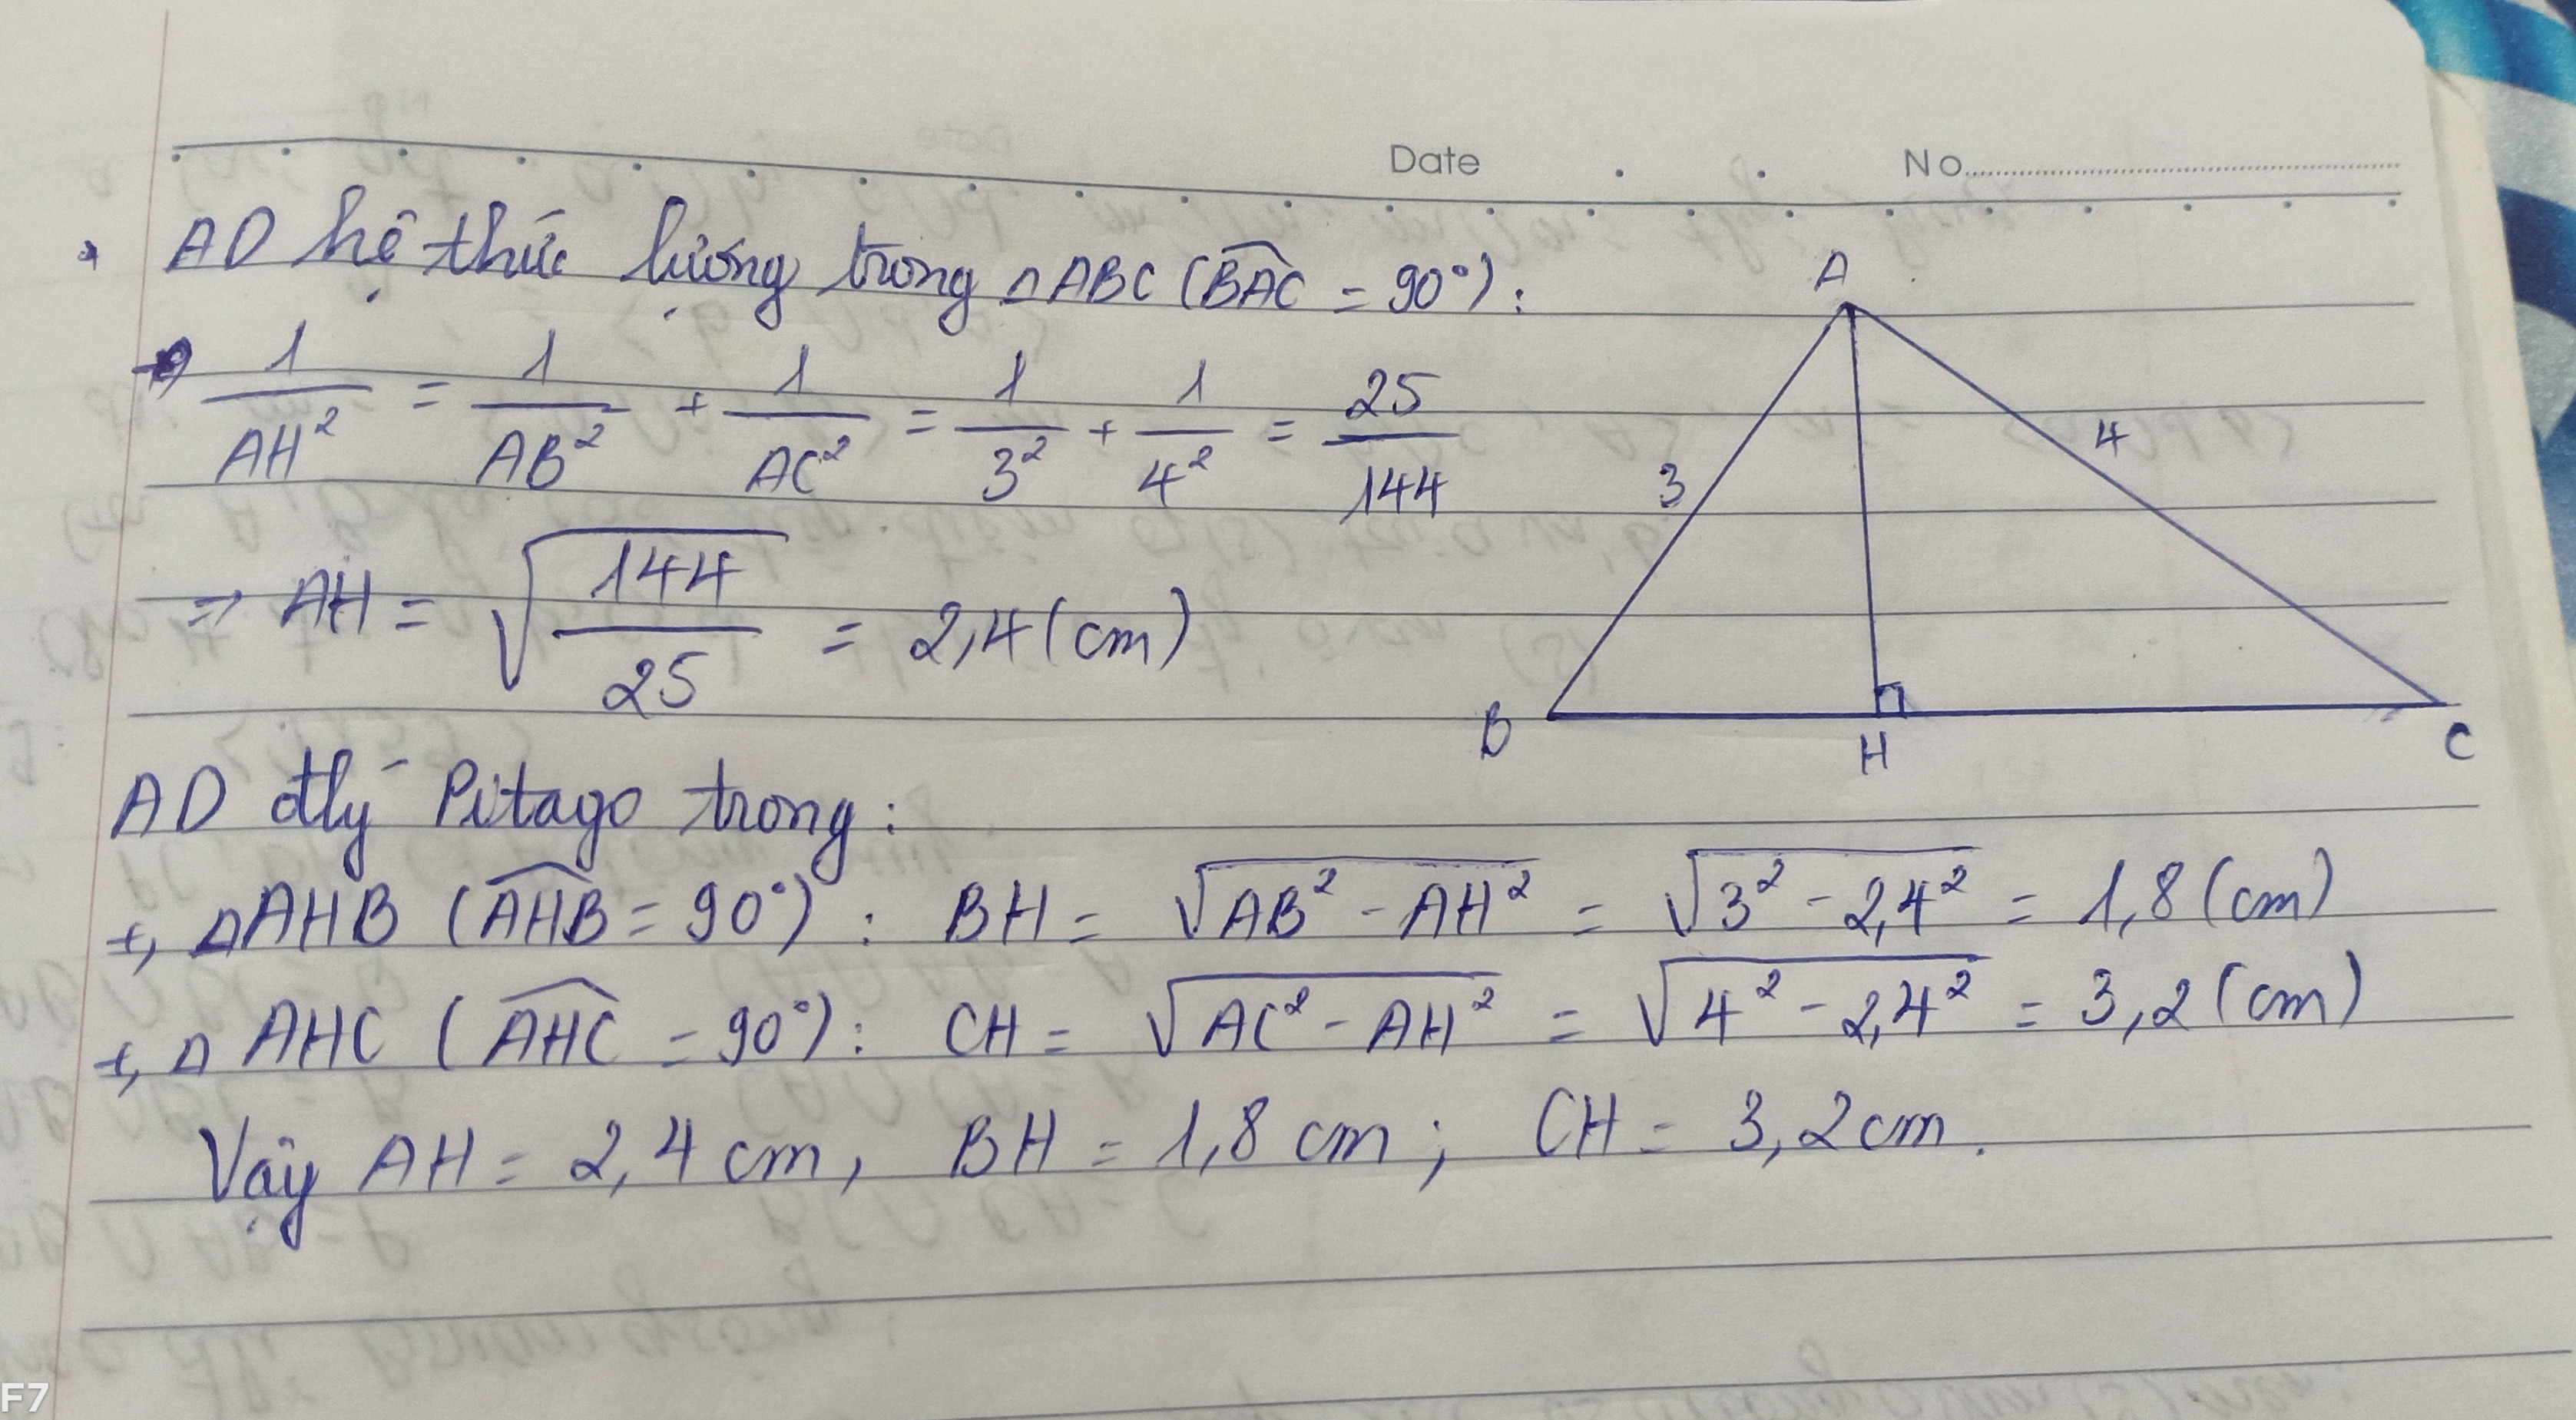 Date . . No.
AD hệ thức lượng trong △ABC (BAC = 90°):
A
1/AH² = 1/AB² + 1/AC² = 1/3² + 1/4² = 25/144
3
4
⇒ AH = √(144/25) = 2,4 (cm)
B
H
C
AD đlý Pitago trong:
+, △AHB (AHB = 90°) : BH = √(AB² - AH²) = √(3² - 2,4²) = 1,8 (cm)
+, △AHC (AHC = 90°) : CH = √(AC² - AH²) = √(4² - 2,4²) = 3,2 (cm)
Vậy AH = 2,4 cm, BH = 1,8 cm; CH = 3,2 cm.
F7